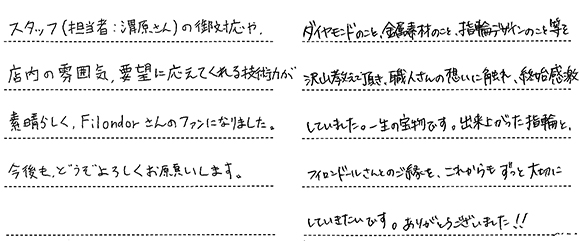 スタッフ(担当者:澤原さん)の御対応や、
店内の雰囲気、要望に応えてくれる技術力が
素晴らしく、Filondorさんのファンになりました。
今後も、どうぞよろしくお願いします。
ダイヤモンドのこと、金属素材のこと、指輪デザインのこと等を
沢山教えて頂き、職人さんの想いに触れ、終始感激
していました。一生の宝物です。出来上がった指輪と、
フィロンドールさんとのご縁を、これからもずっと大切に
していきたいです。ありがとうございました!!